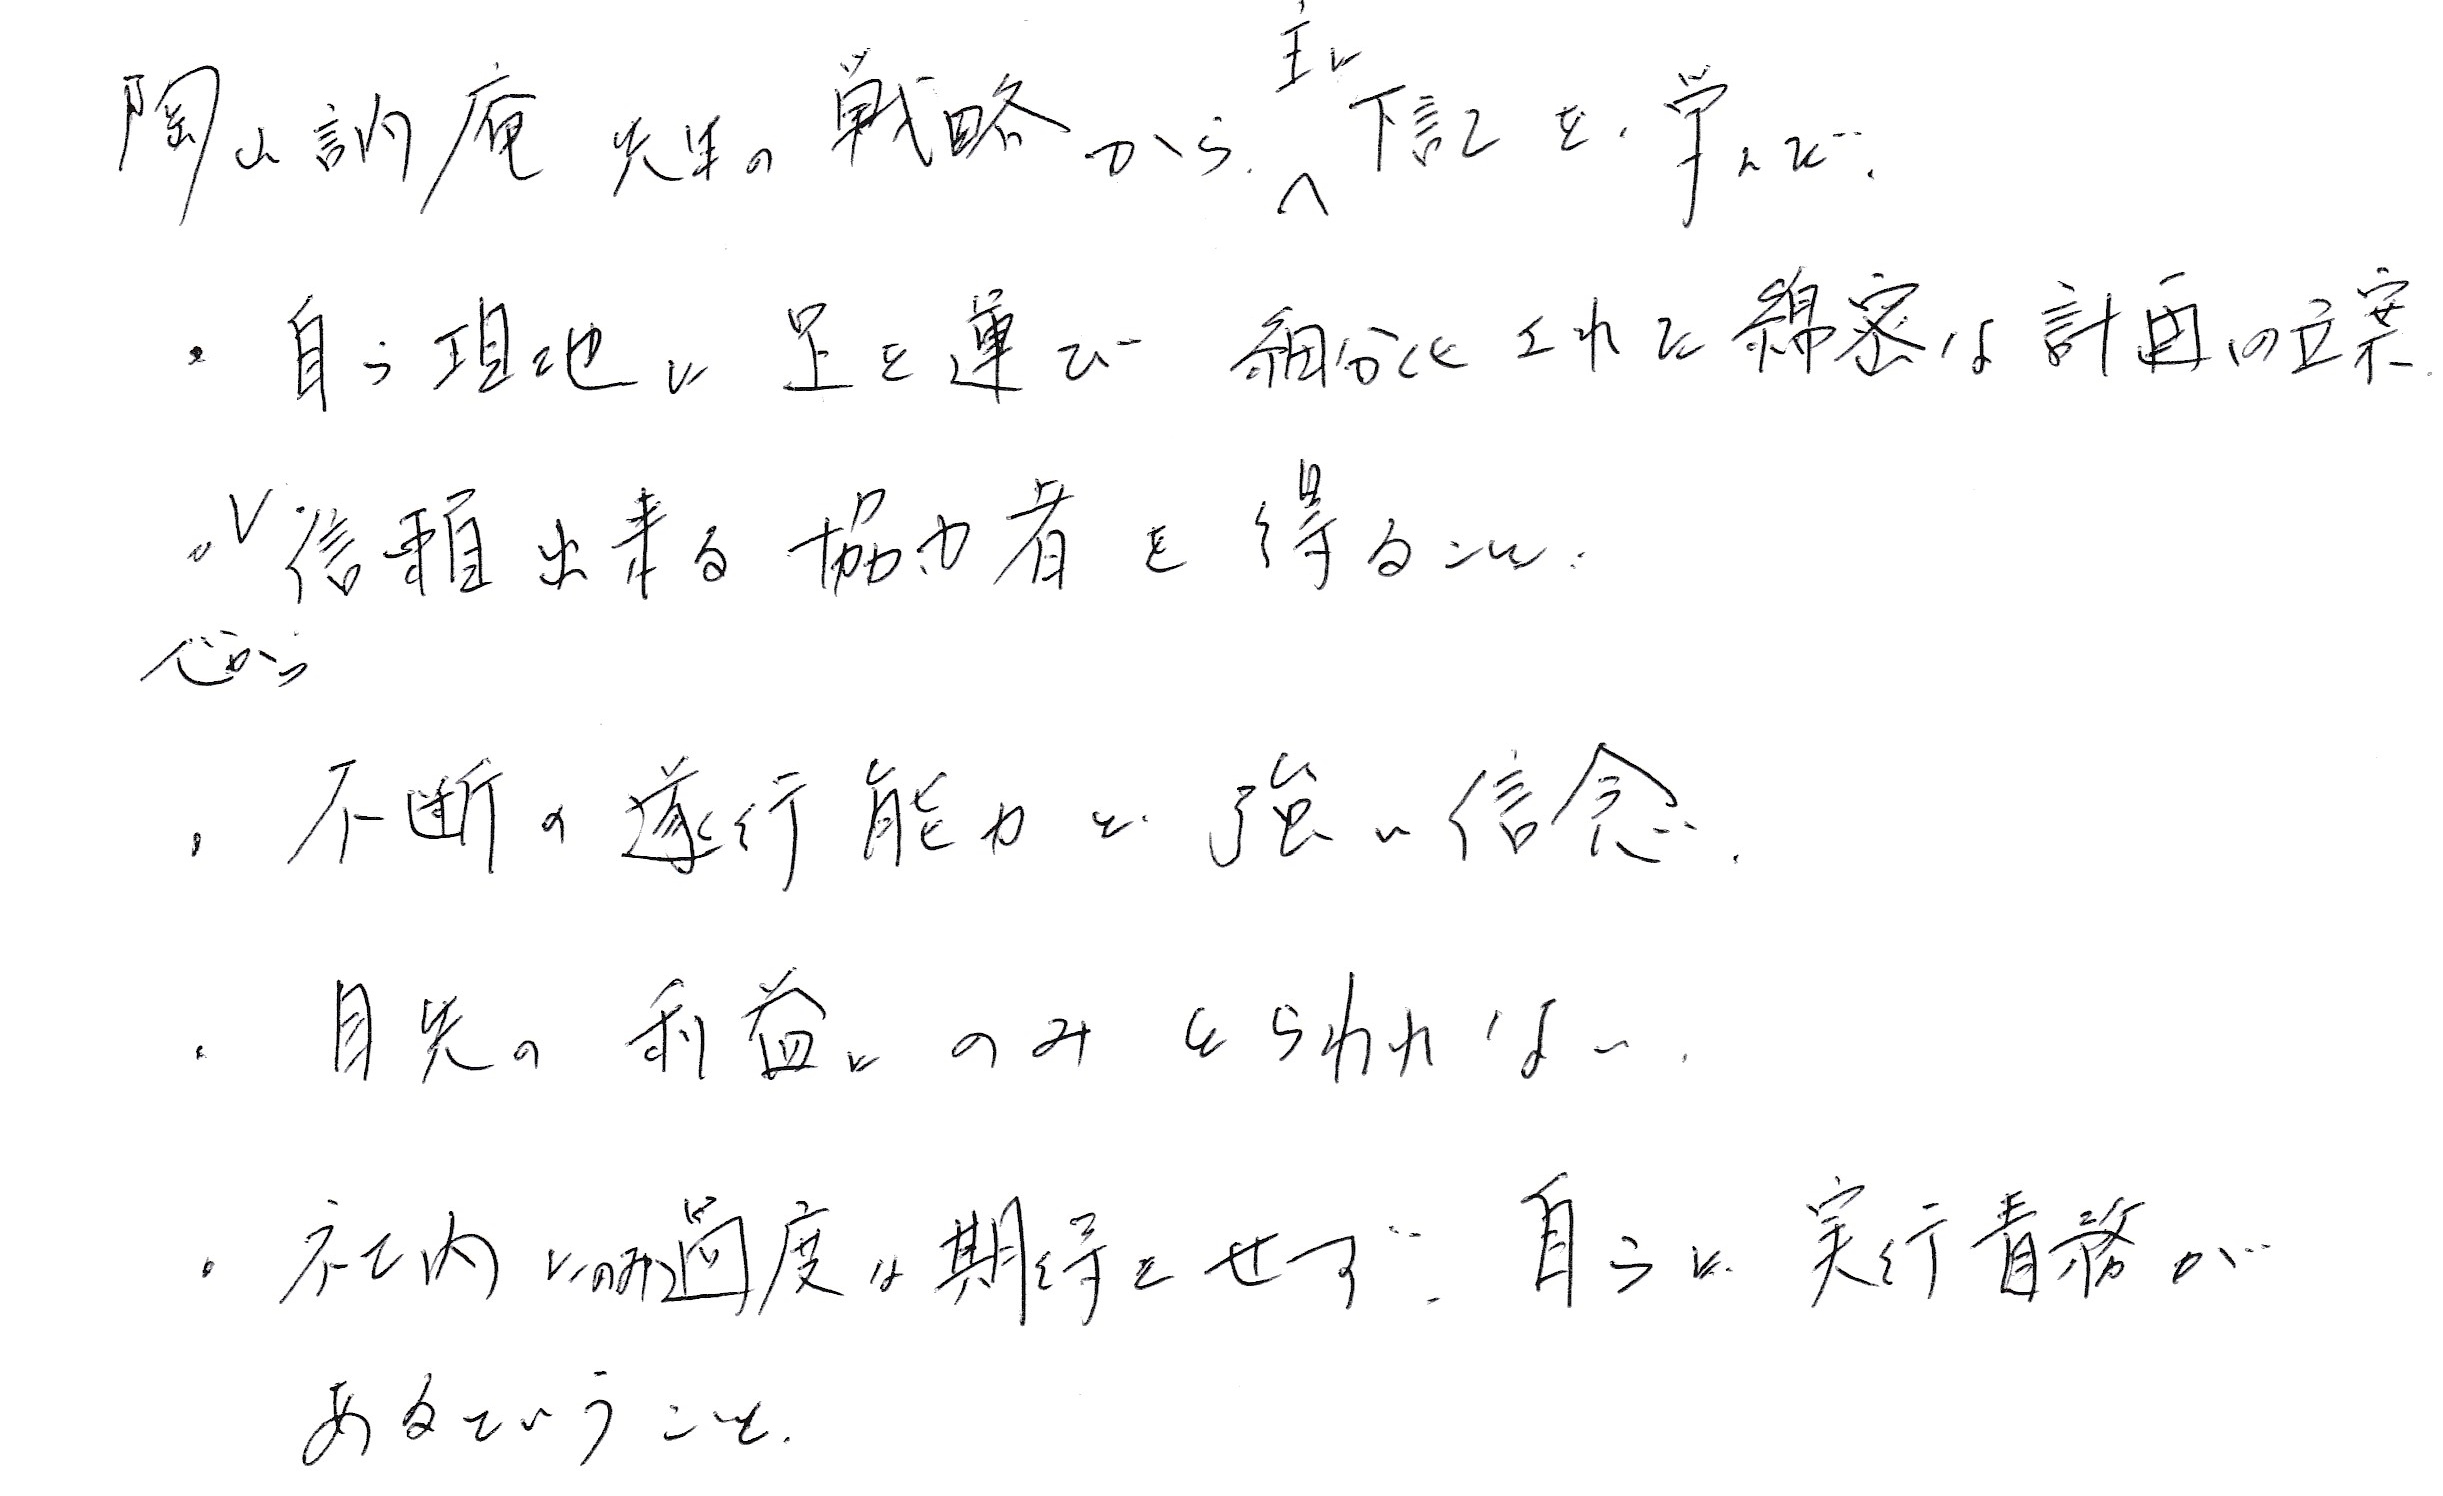 陶山訥庵先生の戦略から、主に下記を学んで、
・自ら現地に足を運び 細分化された綿密な計画の立案
・心から信頼出来る協力者を得ること。
・不断の遂行能力と強い信念。
・目先の利益にのみとらわれない。
・社内にのみ過度な期待をせず、自らに実行責務が
あるということ。